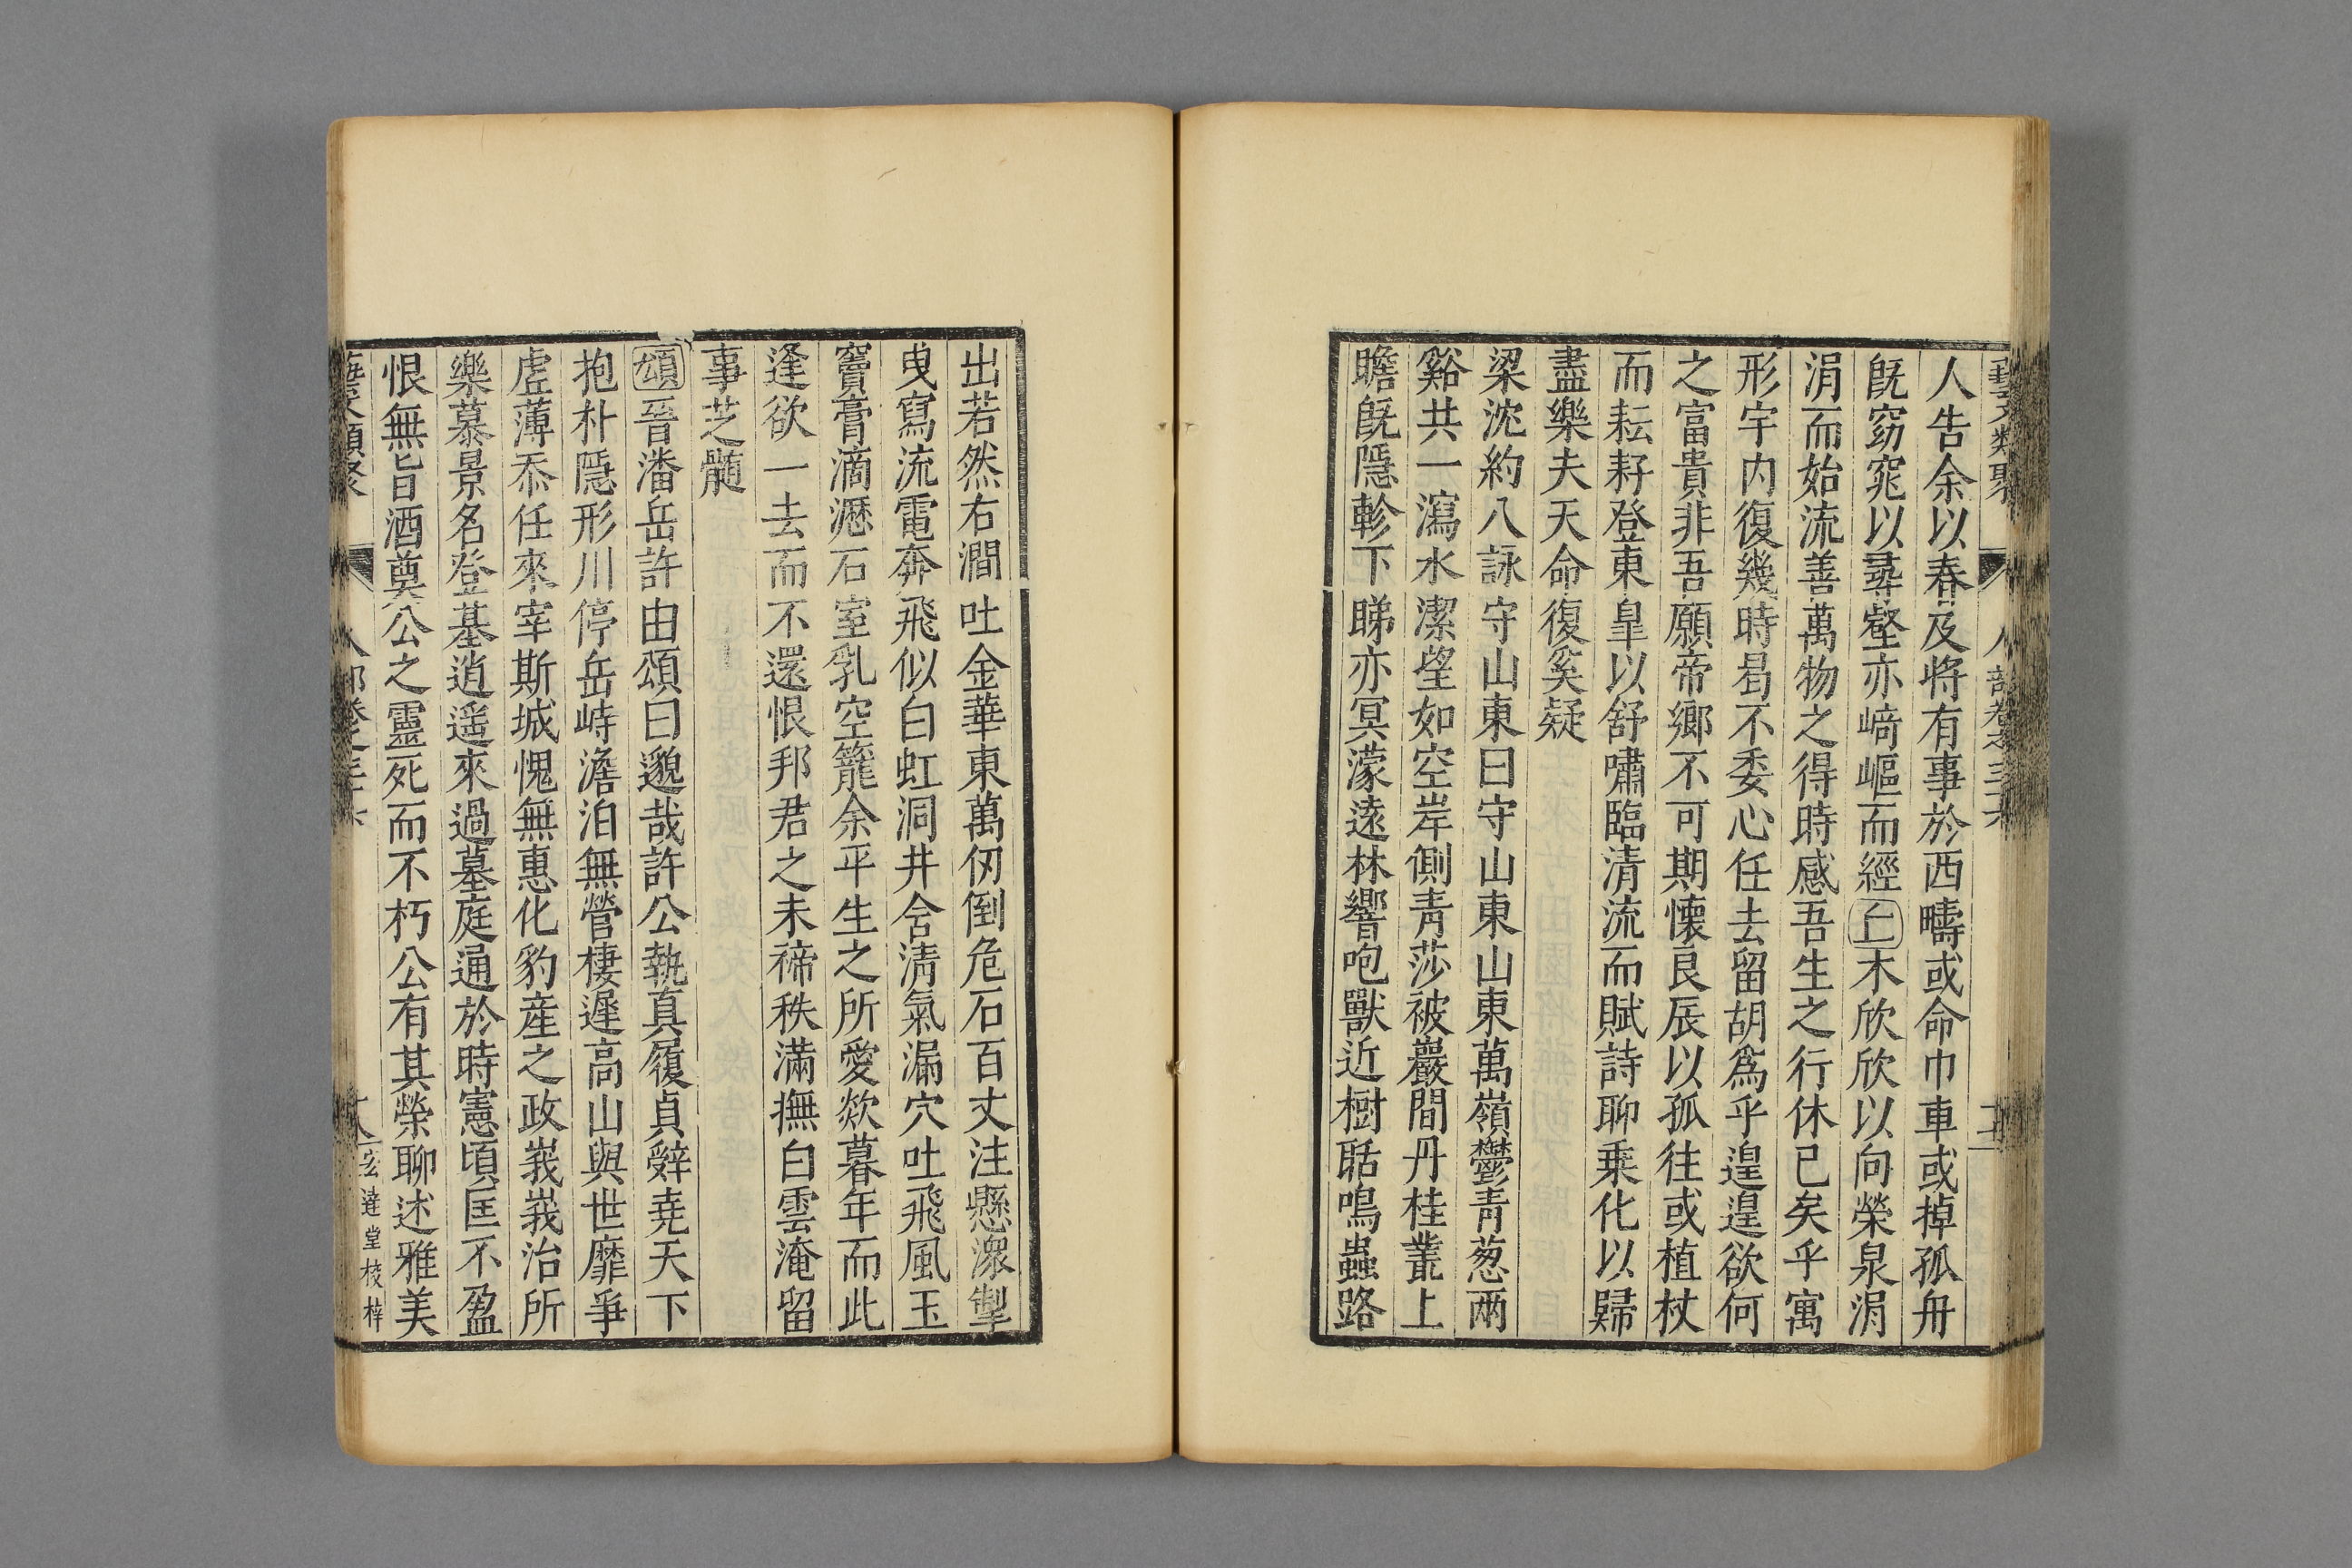 藝文類聚 人部卷之三十六
人告余以春及將有事於西疇或命巾車或掉孤舟
旣窈窕以尋壑亦﨑嶇而經上木欣欣以向榮泉涓
涓而始流善萬物之得時感吾生之行休已矣乎寓
形宇内復幾時曷不委心任去留胡爲乎遑遑欲何
之富貴非吾願帝鄉不可期懐良辰以孤往或植杖
而耘耔登東臯以舒嘯臨清流而賦詩聊乗化以歸
盡樂夫天命復奚疑
梁沈約八詠守山東曰守山東山東萬嶺鬱青葱兩
谿共一瀉水潔望如空岸側青莎被巖間丹桂叢上
瞻旣隱軫下睇亦冥濛遠林響咆獸近樹聒鳴蟲路
出若然右澗吐金華東萬仞倒危石百丈注懸潨掣
曳寫流電奔飛似白虹洞井含淸氣漏穴吐飛風玉
竇膏滴瀝石室乳空籠余平生之所愛欻暮年而此
逢欲一去而不還恨邦君之未禘秩滿撫白雲淹留
事芝髄
頌晉潘岳許由頌曰邈哉許公執真履貞辭堯天下
抱朴隱形川停岳峙澹泊無營棲遲高山與世靡爭
虗薄忝任來宰斯城愧無惠化豹産之政峩峩治所
樂慕景名登基逍遥來過墓庭通於時憲頃匡不盈
恨無旨酒奠公之靈死而不朽公有其榮聊述雅美
藝文類聚 人部卷之三十六 十八 宏達堂校梓